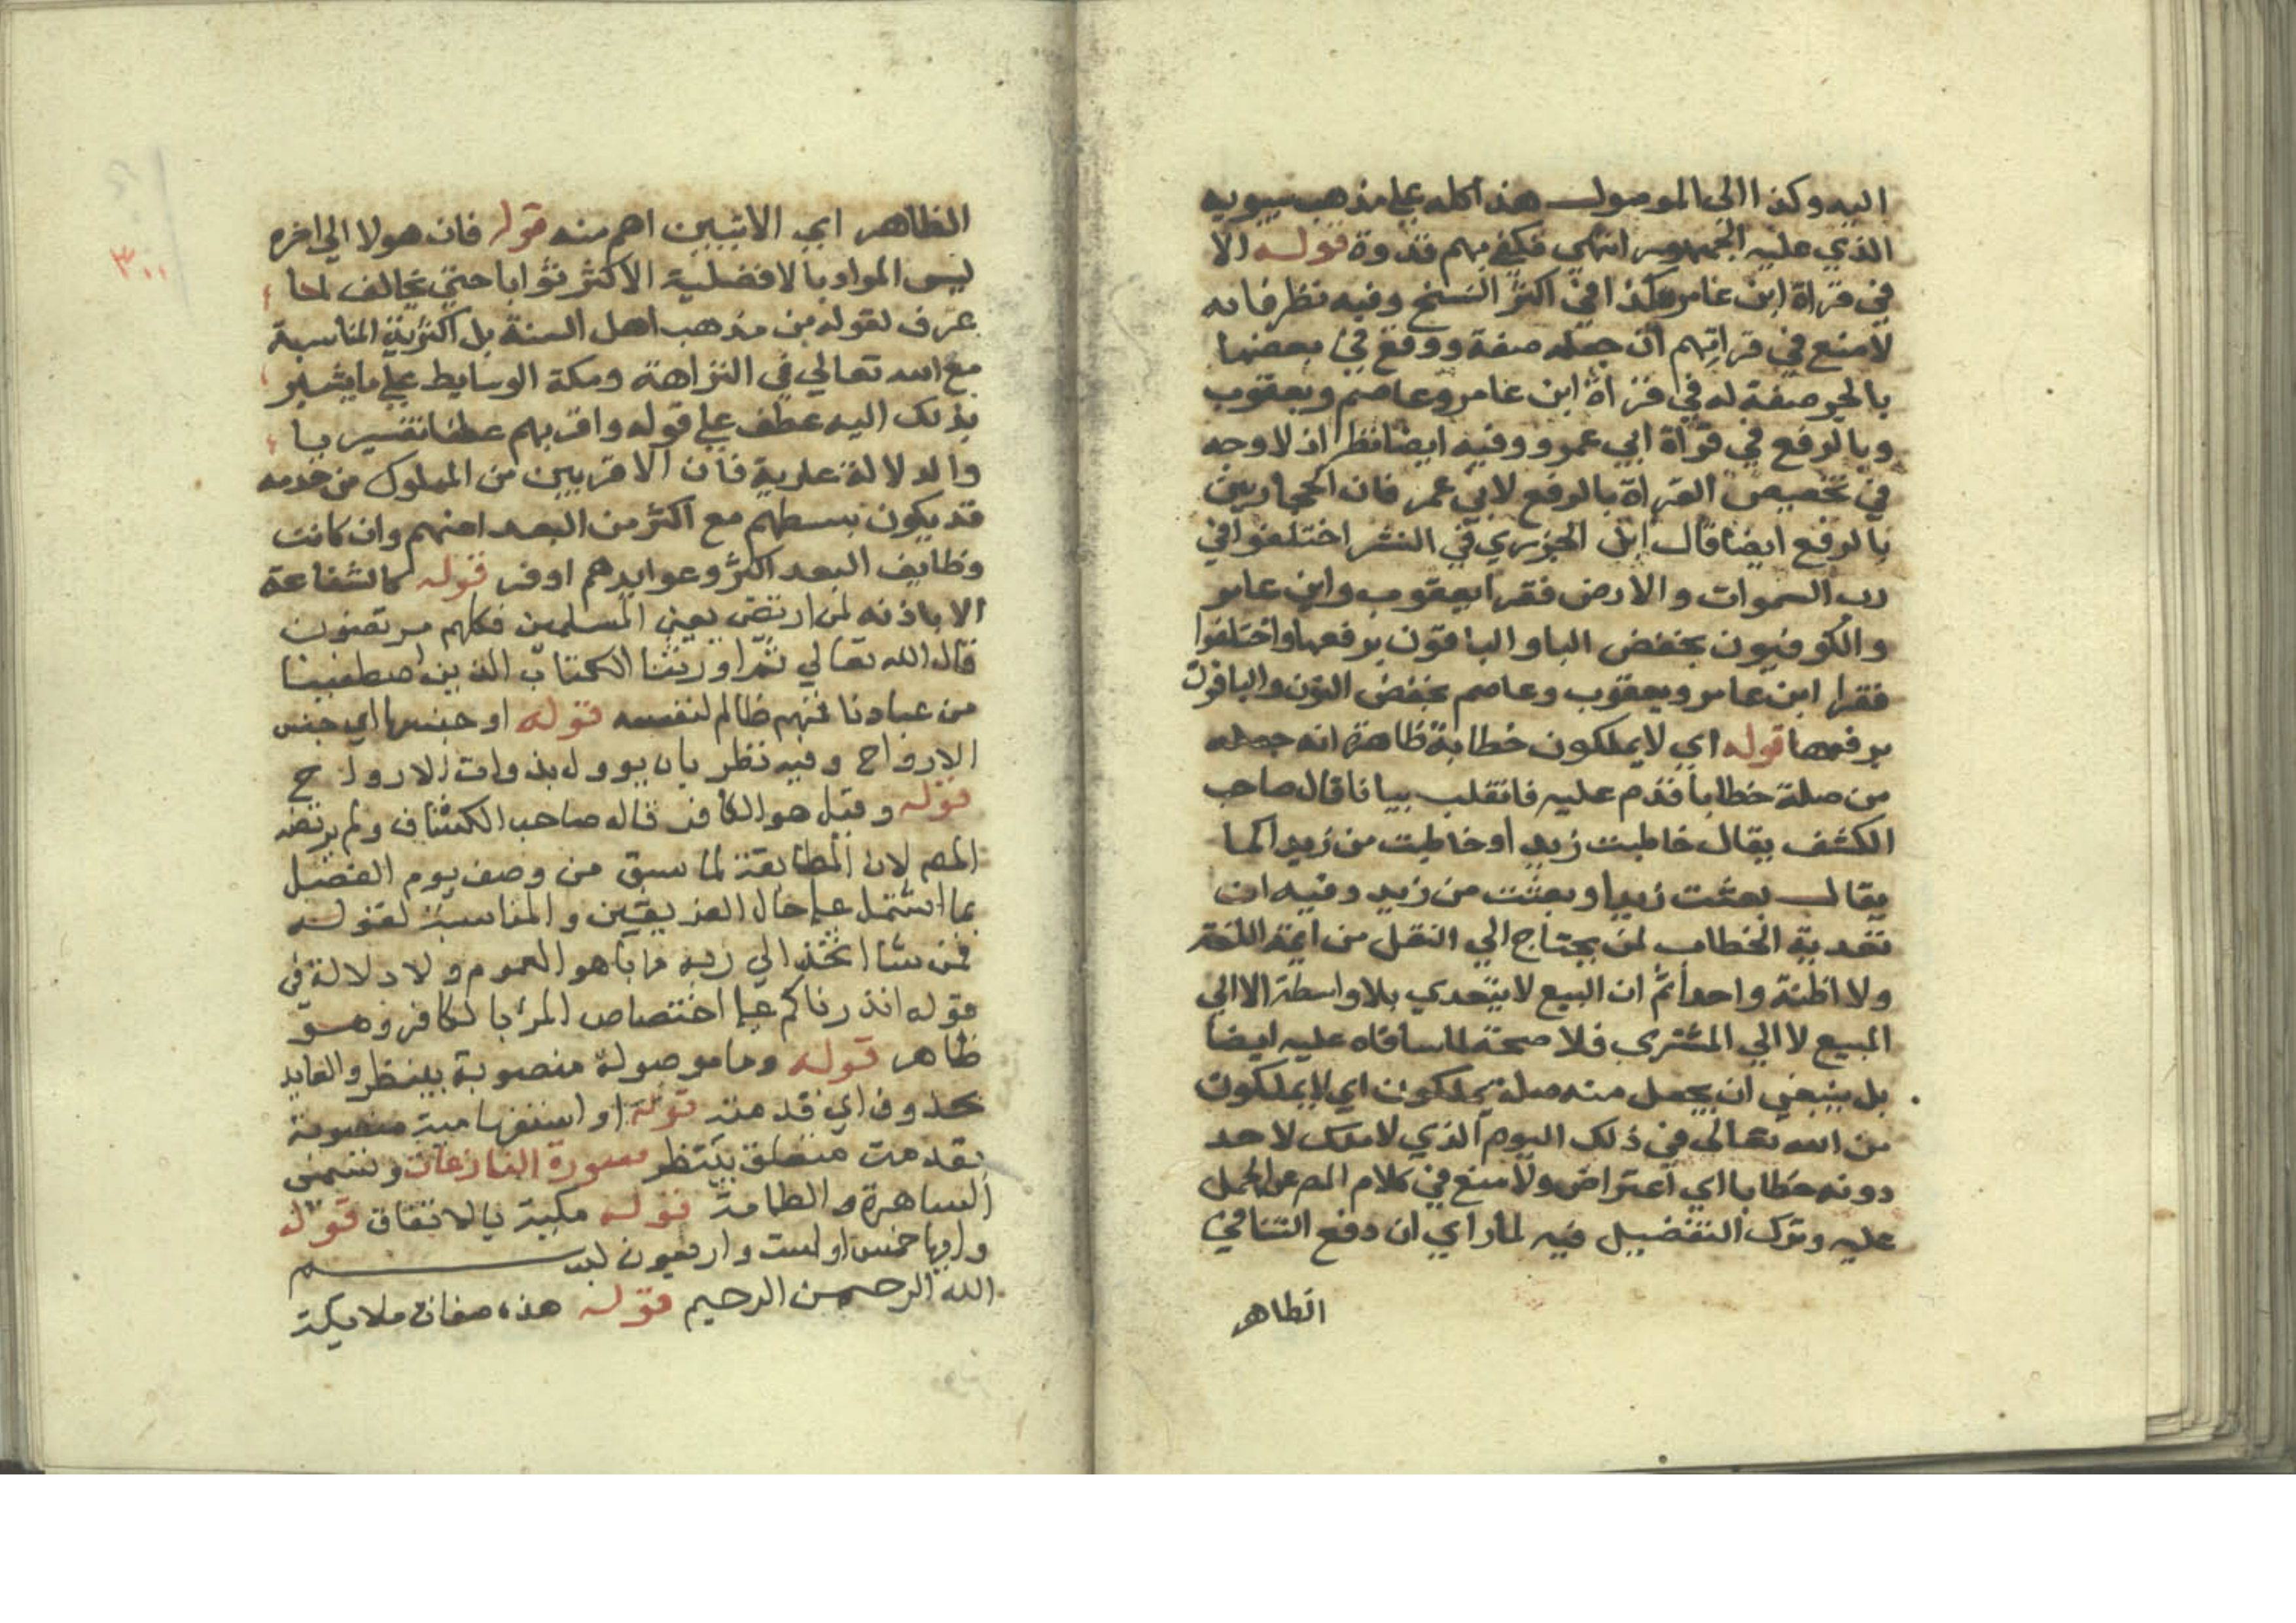 اليه وكذا الي الموصول هذا كله علي مذهب سيبويه
الذي عليه الجمهور انتهي فكفي بهم قدوة قوله الا
في قراة ابن عامر هكذا في اكثر النسخ وفيه نظر فانه
لا منع في قراتهم ان جعله صفة ووقع في بعضها
بالجر صفة له في قراة ابن عامر وعاصم ويعقوب
وبالرفع في قراة ابي عمرو وفيه ايضا نظر اذ لا وجه
في تخصيص القراة بالرفع لابي عمر فان الحجازيين
بالرفع ايضا قال ابن الجزري في النشر اختلفوا في
رب السموات والارض فقرا يعقوب وابن عامر
والكوفيون بخفض البا والباقون برفعها واختلفوا
فقرا ابن عامر ويعقوب وعاصم بخفض النون والباقون
برفعها قوله اي لا يملكون خطابه ظاهره انه جعله
من صلة خطابا قدم عليه فانقلب بيانا قال صاحب
الكشف يقال خاطبت زيدا وخاطبت من زيد كما
يقال بعثت زيدا وبعثت من زيد وفيه ان
تعدية الخطاب لمن يحتاج الي النقل من ايمة اللغة
ولا اظنه واحدا ثم ان البيع لا يتعدي بلا واسطة الا الي
المبيع لا الي المشتري فلا صحة لما ساقاه عليه ايضا
بل ينبغي ان يجعل منه صلة يملكون اي لا يملكون
من الله تعالي في ذلك اليوم الذي لا ملك لاحد
دونه خطابا اي اعتراض ولا منع في كلام المص عن الحمل
عليه وترك التفضيل فيه لما راي ان دفع التنافي
الظاهر
الظاهر اي الاثنين اهم منه قوله فان هولا الي اخره
ليس المراد بالافضلية الاكثر ثوابا حتي يخالف لما
عرف لقوله من مذهب اهل السنة بل اكثرية المناسبة
مع الله تعالي في النزاهة ومكة الوسايط علي ما يشير
بذلك اليه عطف علي قوله واقربهم عطفا تفسيريا
والدلالة علية فان الاقربين من الملوك من خدمه
قد يكون بسطهم مع اكثر من البعدا منهم وان كانت
وظايف البعد اكثر وعوايدهم اوفر قوله كالشفاعة
الا باذنه لمن ارتضي يعني المسلمين فكلهم مرتضون
قال الله تعالي ثم اورثنا الكتاب الذين اصطفينا
من عبادنا فمنهم ظالم لنفسه قوله او جنسها اي جنس
الارواح وفيه نظر بان يوول بذوات الارواح
قوله وقيل هو الكافر قاله صاحب الكشاف ولم يرتضه
المص لان المطابقة لما سبق من وصف يوم الفصل
بما اشتمل علي حال الفريقين والمناسبة لقوله
فمن شا اتخذ الي ربه مابا هو العموم ولا دلالة في
قوله انذرناكم علي اختصاص المرء بالكافر وهو
ظاهر قوله وما موصولة منصوبة بينظر والعايد
محذوف اي قدمته قوله او استفهامية منصوبة
بقدمت متعلق بينتظر سورة النازعات وتسمي
الساهرة والطامة قوله مكية بالاتفاق قوله
وايها خمس او ست واربعون بسم
الله الرحمن الرحيم قوله هذه صفات ملايكة
٣٠٠